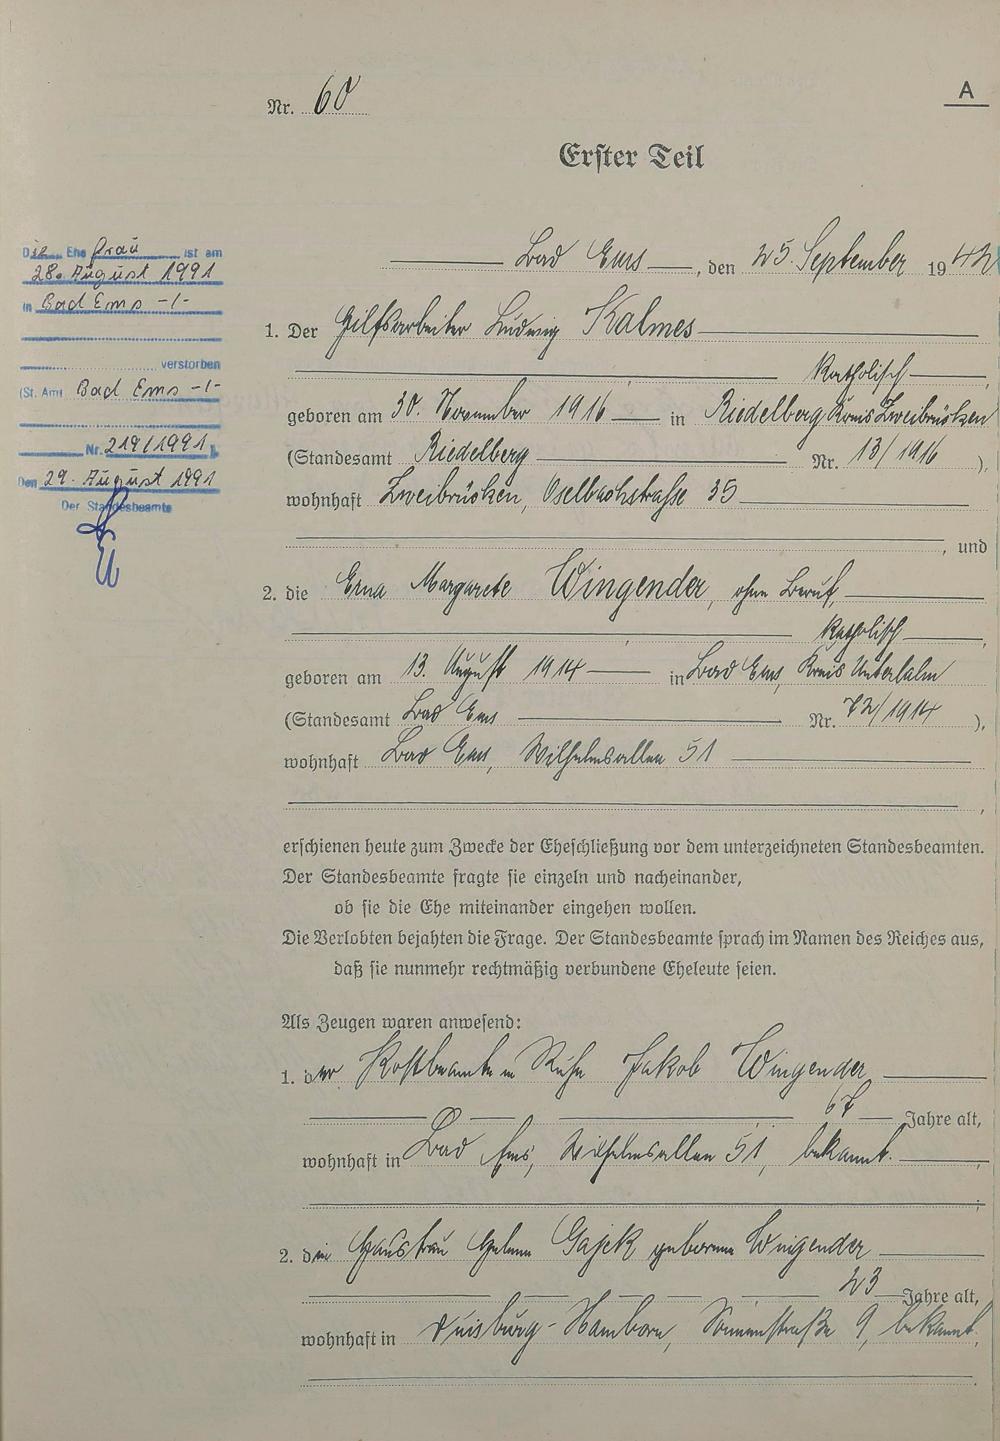 Nr. 60
A
Erster Teil
Bad Ems, den 25. September 1942
1. Der Hilfsarbeiter Ludwig Kalmes
katholisch,
geboren am 30. November 1916 in Riedelberg Kreis Zweibrücken
(Standesamt Riedelberg Nr. 13/1916),
wohnhaft Zweibrücken, Oselbachstrasse 35
, und
2. die Erna Margarete Wingender, ohne Beruf,
katholisch,
geboren am 13. August 1914 in Bad Ems, Kreis Unterlahn
(Standesamt Bad Ems Nr. 72/1914),
wohnhaft Bad Ems, Wilhelmsallee 51
,
erschienen heute zum Zwecke der Eheschließung vor dem unterzeichneten Standesbeamten.
Der Standesbeamte fragte sie einzeln und nacheinander,
ob sie die Ehe miteinander eingehen wollen.
Die Verlobten bejahten die Frage. Der Standesbeamte sprach im Namen des Reiches aus,
daß sie nunmehr rechtmäßig verbundene Eheleute seien.
Als Zeugen waren anwesend:
1. der Jakob Wingender
67 Jahre alt,
wohnhaft in Bad Ems, Wilhelmsallee 51, bekannt.
;
2. die Hausfrau Helene Gajek geborene Wingender
23 Jahre alt,
wohnhaft in Duisburg-Hamborn, Sonnenstraße 9, bekannt.
Die Ehefrau ist am
28. August 1991
in Bad Ems -/-
verstorben
(St. Amt Bad Ems -/-
Nr. 219/1991).
Den 29. August 1991
Der Standesbeamte